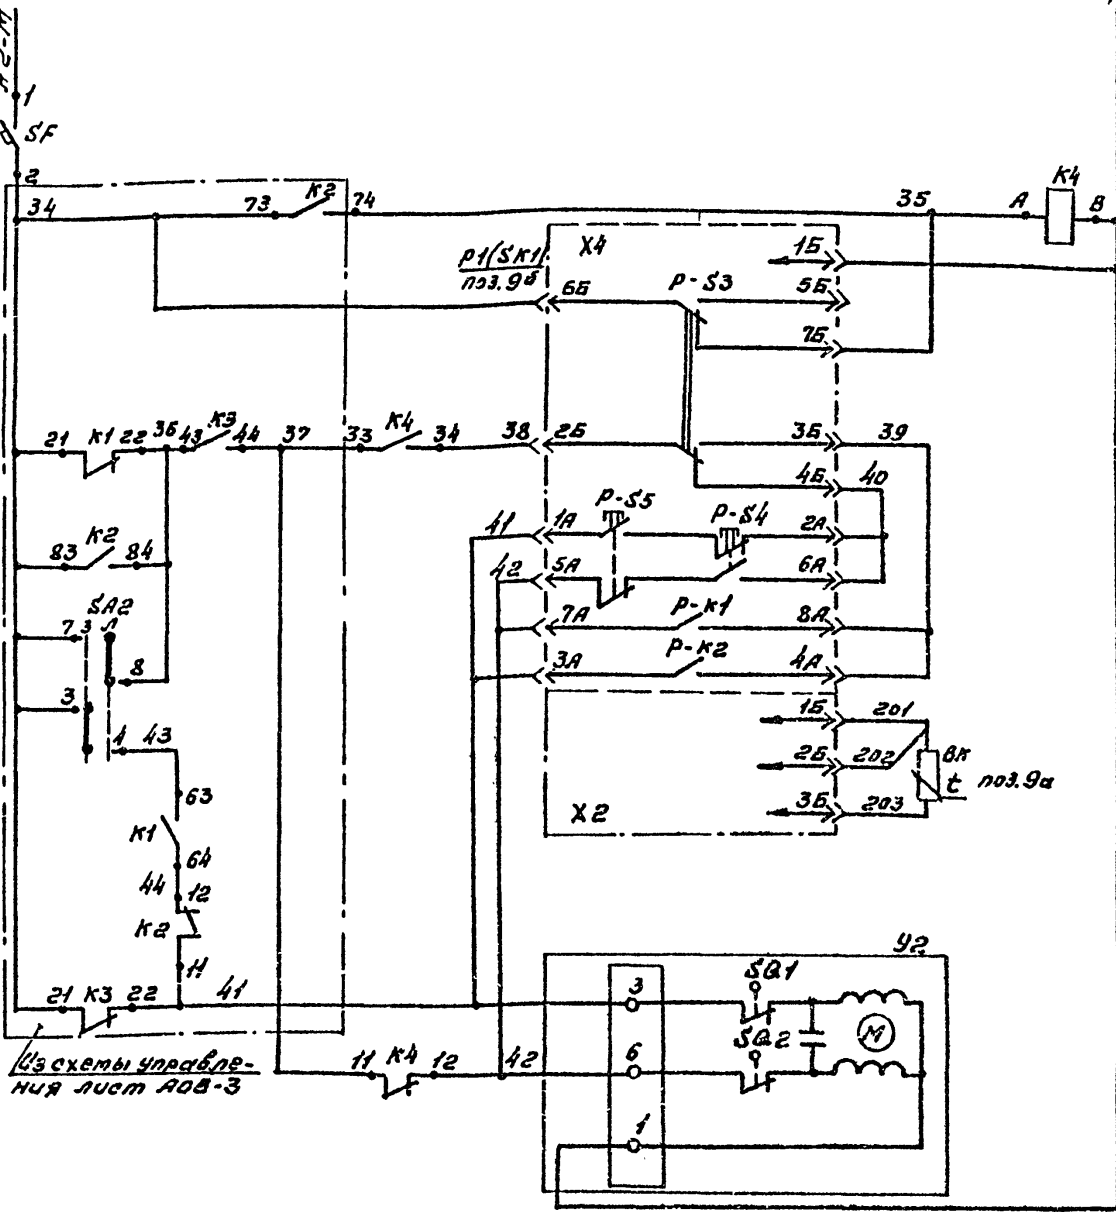 1
SF
2
34
73
K2
74
35
A
K4
B
X4
1Б
P1(SK1)
поз.9б
6Б
P-S3
5Б
7Б
21
K1
22
36
43
K3
44
37
33
K4
34
38
2Б
3Б
39
4Б
40
P-S5
P-S4
41
1А
2А
83
K2
84
42
5А
6А
SA2
7
3
Л
7А
P-K1
8А
8
3А
P-K2
4А
3
4
43
1Б
201
2Б
202
ВК
t
поз.9а
3Б
203
X2
63
K1
64
44
12
K2
11
У2
21
K3
22
41
3
SQ1
M
SQ2
Из схемы управле-
ния лист АОВ-3
11
K4
12
42
6
1